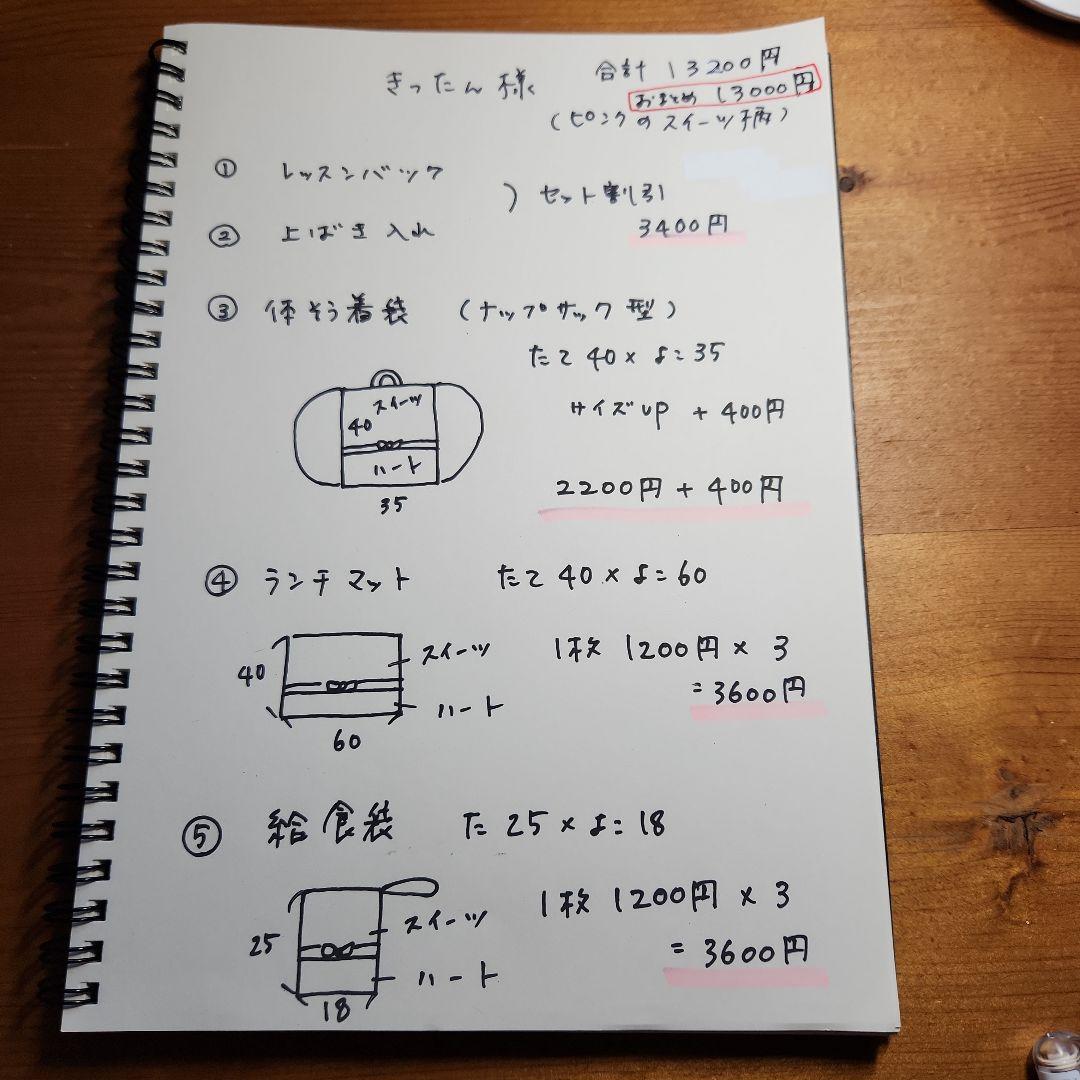 きったん様
合計 13200円
おまとめ 13000円
(ピンクのスイーツ柄)
① レッスンバック
) セット割引
② 上ばき入れ
3400円
③ 体そう着袋 (ナップサック型)
たて 40 × よこ 35
スイーツ
40
サイズup + 400円
ハート
35
2200円 + 400円
④ ランチマット たて 40 × よこ 60
スイーツ
40
1枚 1200円 × 3
= 3600円
ハート
60
⑤ 給食袋 た 25 × よこ 18
1枚 1200円 × 3
スイーツ
25
= 3600円
ハート
18